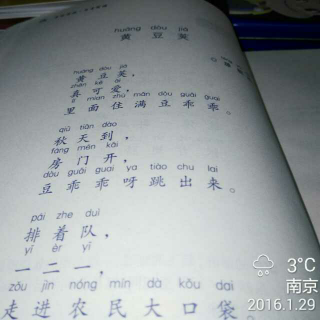 huáng dòu jiá
黄豆荚
huáng dòu jiá
黄豆荚，
zhēn kě ài
真可爱，
lǐ mian zhù mǎn dòu guāi guai
里面住满豆乖乖。
qiū tiān dào
秋天到，
fáng mén kāi
房门开，
dòu guāi guai ya tiào chu lai
豆乖乖呀跳出来。
pái zhe duì
排着队，
yī èr yī
一二一，
zǒu jìn nóng mín dà kǒu dai
走进农民大口袋
3°C
南京
2016.1.29